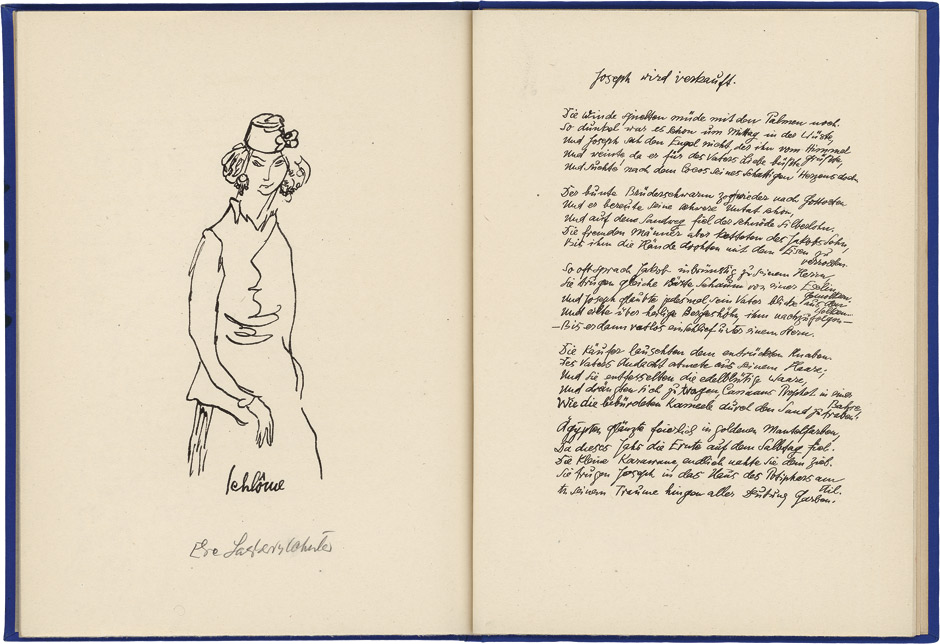 Schlôme
Joseph wird verkauft.
Die Winde spielten müde mit den Palmen noch.
So dunkel war es schon um Mittag in der Wüste,
Und Joseph sah den Engel nicht, der ihn vom Himmel
grüßte,
Und weinte, da er für des Vaters Liebe büßte,
Und suchte nach dem Cocos seines schattigen Herzens doch.
Der bunte Brüderschwarm zog wieder nach Gottosten
Und er bereute seine schwere Untat schon,
Und auf dem Sandweg fiel der schnöde Silberlohn.
Die fremden Männer aber ketteten des Jakobs Sohn,
Bis ihm die Häute drohten mit dem Eisen zu
verrosten.
So oft sprach Jakob inbrünstig zu seinem Herrn,
Sie trugen gleiche Bärte, Schaum von einer Eselin
gemolken.
Und Joseph glaubte jedesmal, sein Vater blicke aus den
Wolken
Und eilte über heilige Bergeshöhn, ihm nachzufolgen—
—Bis er dann ratlos einschlief unter einem Stern.
Die Käufer lauschten dem entrückten Knaben.
Des Vaters Andacht atmete aus seinem Haare;
Und sie entfesselten die edelblütige Waare,
Und drängten sich zu tragen, Canaans Prophet in einer
Bahre,
Wie die bebürdeten Kameele durch den Sand zu traben.
Ägypten glänzte feierlich in goldenen Mantelfarben,
Da dieses Jahr die Ernte auf dem Salbtag fiel.
Die kleine Karawane, endlich nahte sie dem Ziel.
Sie trugen Joseph in das Haus des Potiphars am
Nil.
In seinem Traume hingen aller Deutung Garben.